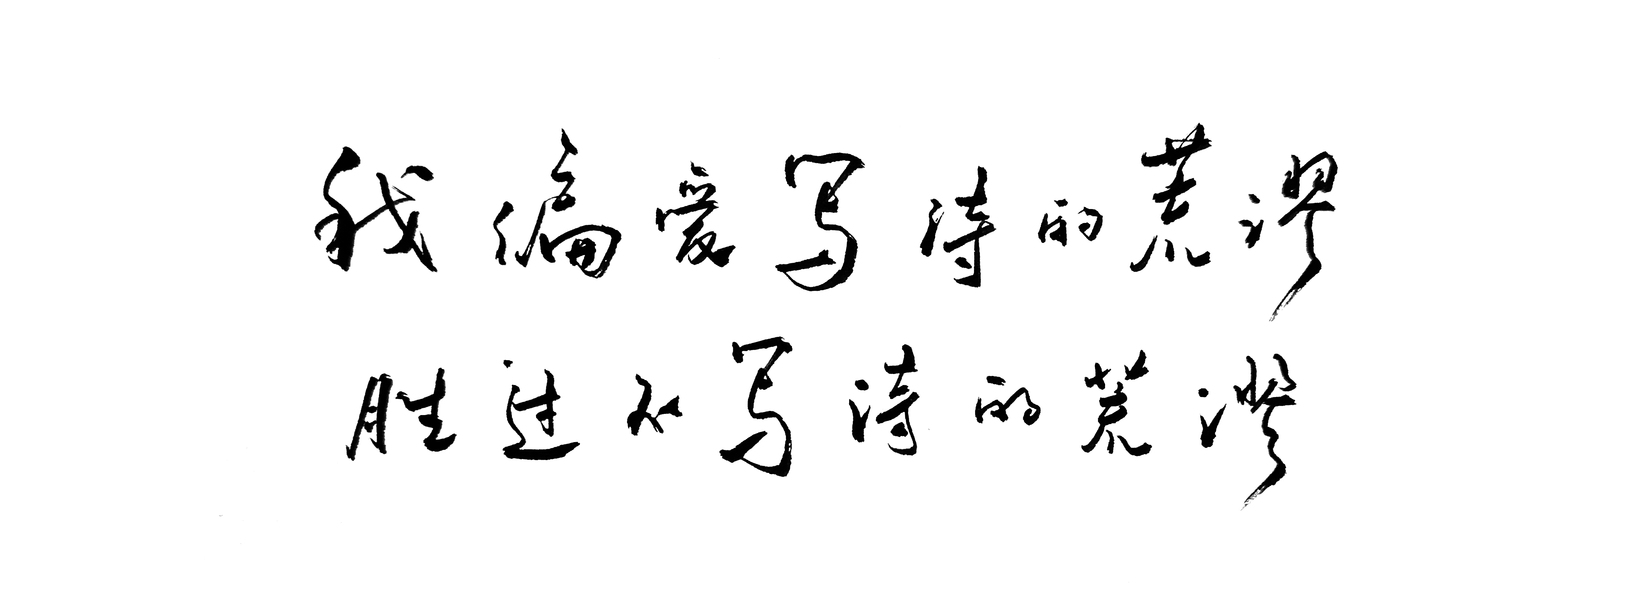 我偏爱写诗的荒谬
胜过不写诗的荒谬